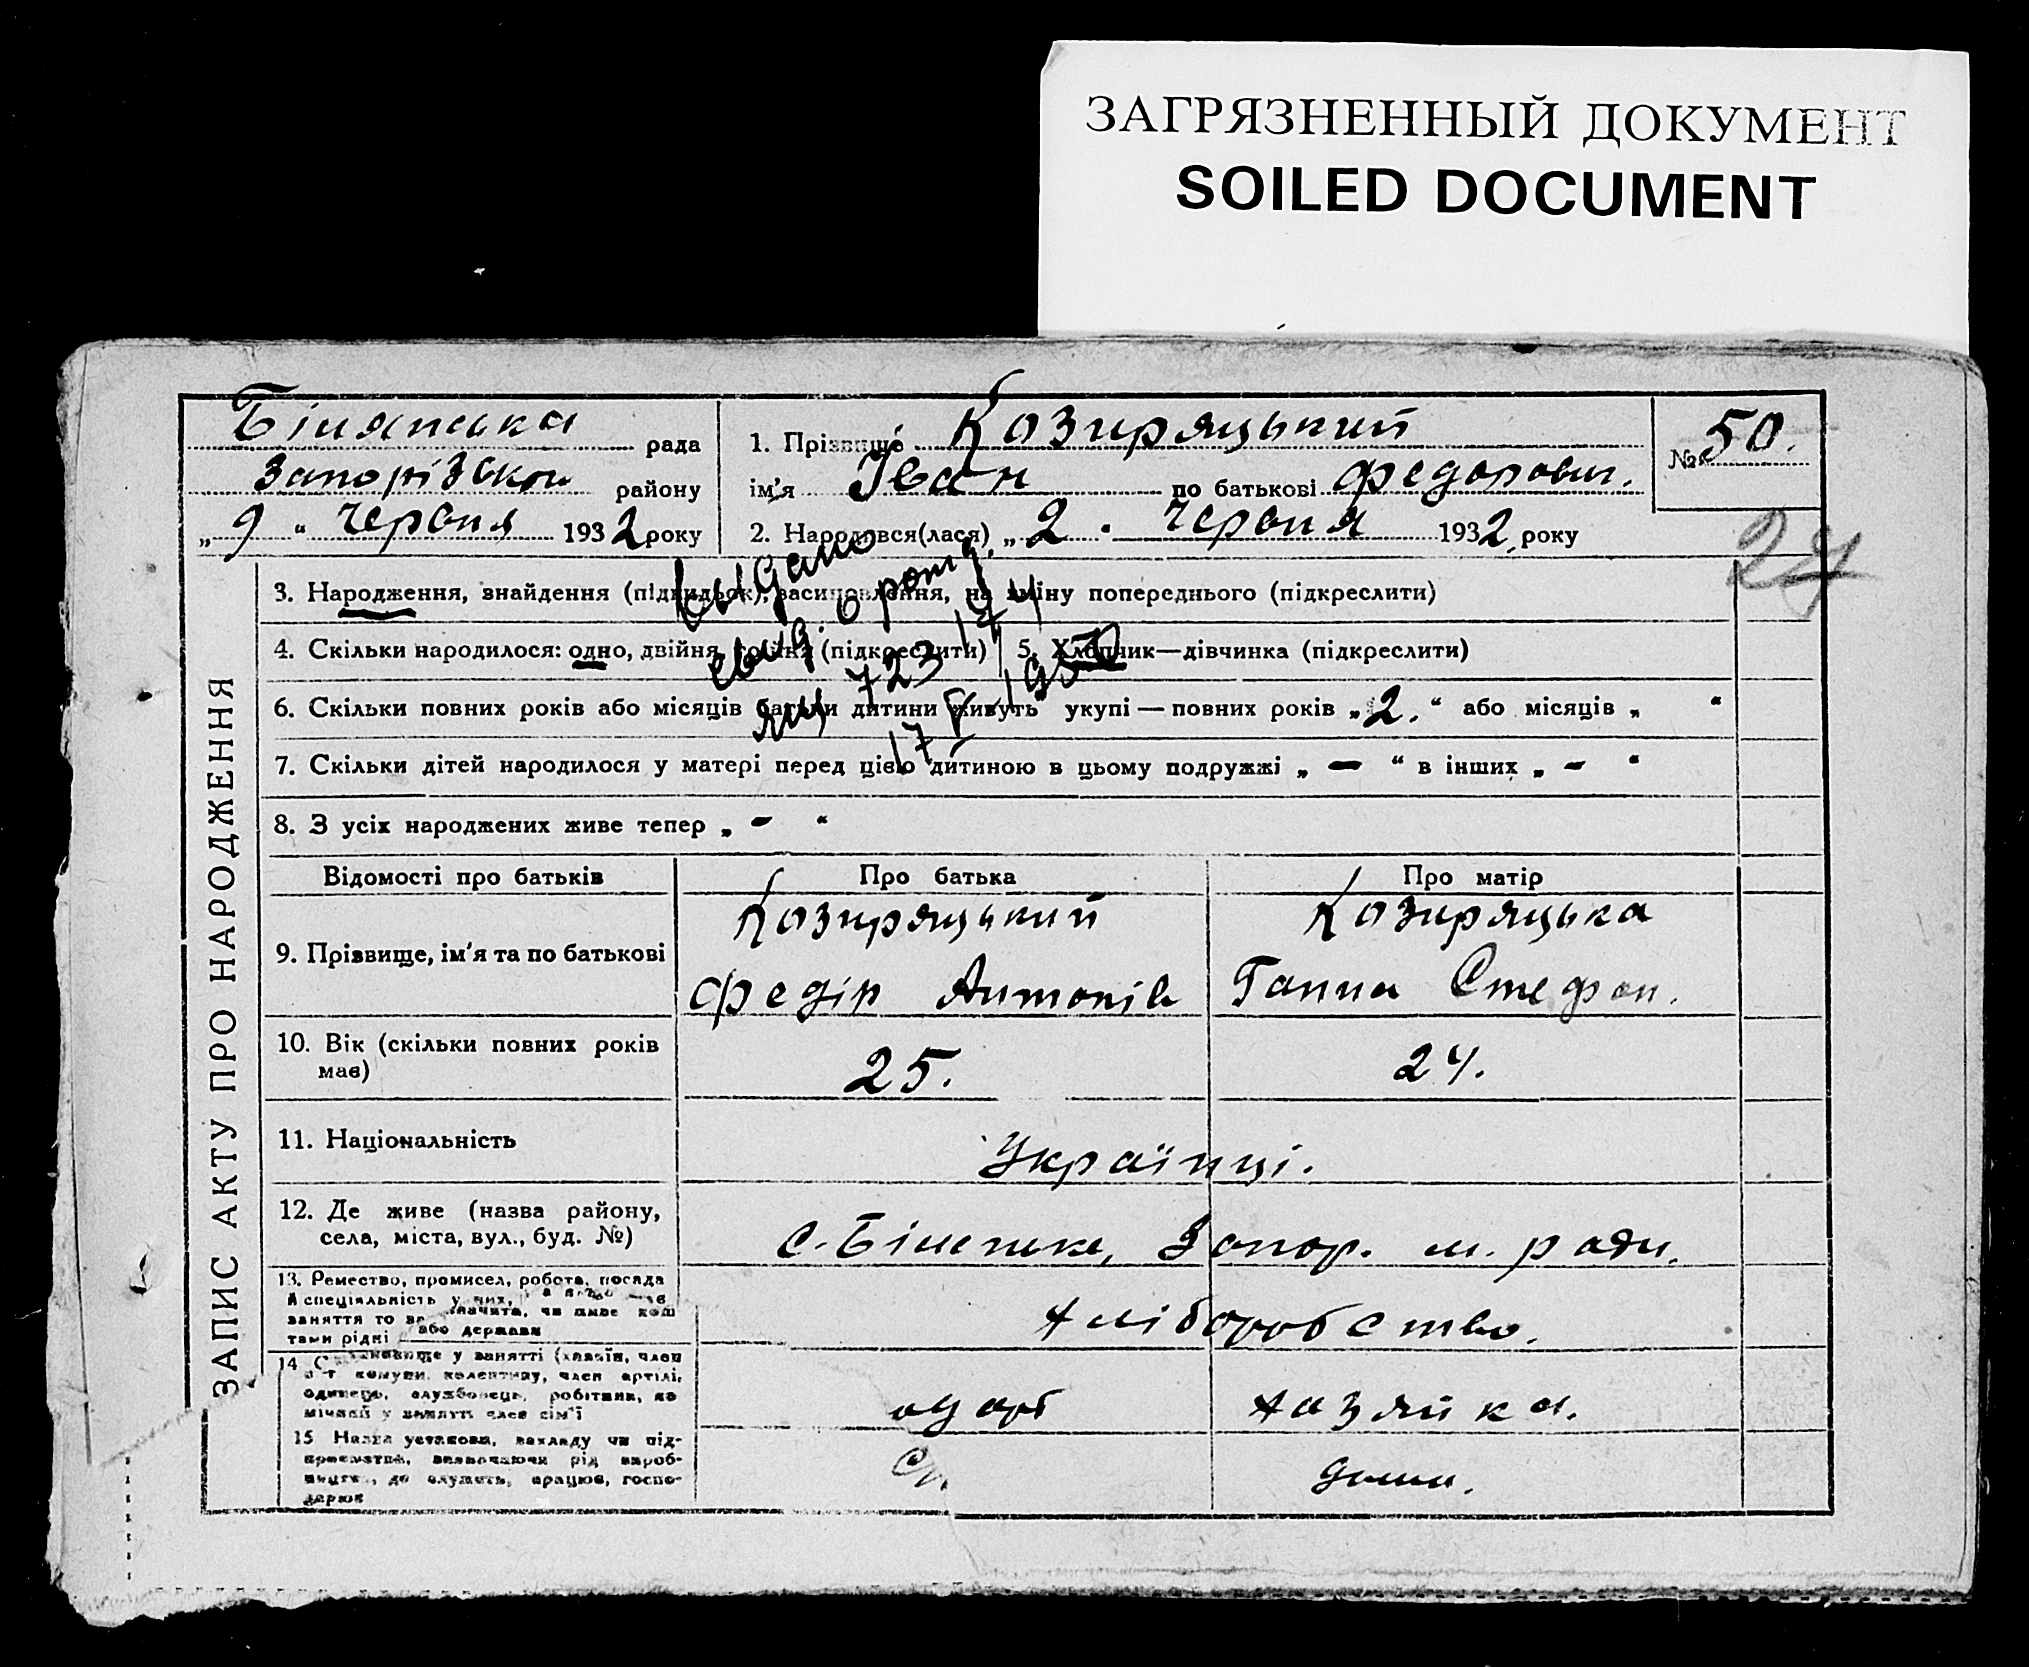 ЗАГРЯЗНЕННЫЙ ДОКУМЕНТ
SOILED DOCUMENT
Біляпська рада
Запорізькои району
„ 9 “ червня 1932 року
1. Прізвище Козиряцький
ім’я Іван по батькові Федорович.
2. Народився(лася) „ 2 . червня 1932 року
№ 50.
24
ЗАПИС АКТУ ПРО НАРОДЖЕННЯ
3. Народження, знайдення (підкидьок), засиновлення, на зміну попереднього (підкреслити)
4. Скільки народилося: одно, двійня, трійня (підкреслити)
5. Хлопчик—дівчинка (підкреслити)
6. Скільки повних років або місяців батьки дитини живуть укупі — повних років „ 2. “ або місяців „ “
7. Скільки дітей народилося у матері перед цією дитиною в цьому подружжі „ — “ в інших „ - “
8. З усіх народжених живе тепер „ - “
выдано
свид. о рожд.
723
17 V 1950
Відомості про батьків Про батька Про матір
9. Прізвище, ім’я та по батькові
Козиряцький
Федір Антонів
Козиряцька
Ганна Стефан.
10. Вік (скільки повних років
має)
25. 24.
11. Національність
Українці.
12. Де живе (назва району,
села, міста, вул., буд. №)
с. Біленьке, Запор. м. ради.
13. Ремество, промисел, робота, посада
й спеціяльність у них,
заняття то
значити, чи живе кош
тами рідні або держави
Хліборобство.
14. Становище у занятті (хазяїн, член
комуни, колективу, член артілі,
одинець, службовець, робітник, по
мічний у занятті член сім’ї
одарб хазяйка.
15. Назва установи, закладу чи під-
приємства, визначаючи рід вироб-
ництва, де служить, працює, госпо-
дарює
дома.